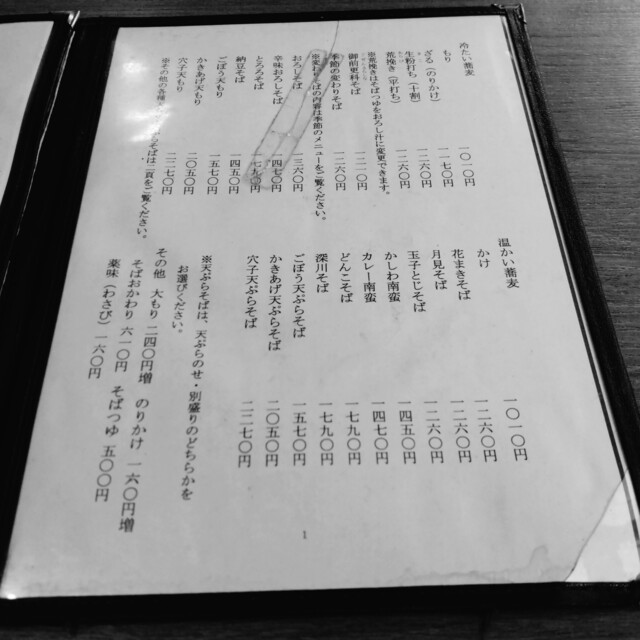 冷たい蕎麦
もり 一〇一〇円
ざる（のりかけ） 一一七〇円
生粉打ち（十割） 一二六〇円
荒挽き（平打ち） 一二六〇円
※荒挽きはそばつゆをおろし汁に変更できます。
御前更科そば 一二一〇円
季節の変わりそば 一二六〇円
※変わりそばの内容は季節のメニューをご覧ください。
おろしそば 一三六〇円
辛味おろしそば 一四七〇円
とろろそば 一七九〇円
納豆そば 一四五〇円
ごぼう天もり 一五七〇円
かきあげ天もり 二〇五〇円
穴子天もり 二二七〇円
※その他の各種 そばは二頁をご覧ください。
温かい蕎麦
かけ 一〇一〇円
花まきそば 一二六〇円
月見そば 一二六〇円
玉子とじそば 一二六〇円
かしわ南蛮 一四五〇円
カレー南蛮 一四七〇円
どんこそば 一七九〇円
深川そば 一七九〇円
ごぼう天ぷらそば 一五七〇円
かきあげ天ぷらそば 二〇五〇円
穴子天ぷらそば 二二七〇円
※天ぷらそばは、天ぷらのせ・別盛りのどちらかを
お選びください。
その他 大もり 二四〇円増 のりかけ 一六〇円増
そばおかわり 六一〇円 そばつゆ 五〇〇円
薬味（わさび）一六〇円
1